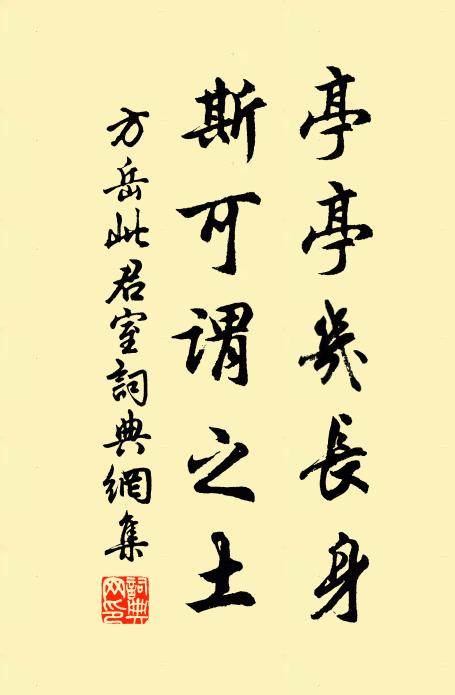 亭亭幾長身
斯可謂之土
方岳此君室詞典網集
詞典网印